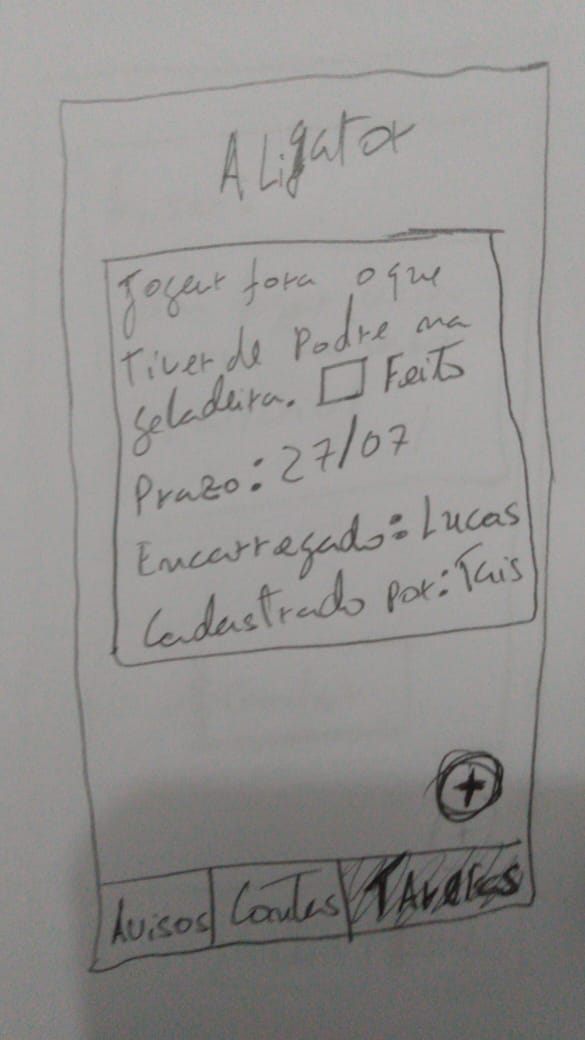 ALigator
Jogar fora o que
Tiver de Podre na
geladeira. Feito
Prazo: 27/07
Encarregado: Lucas
Cadastrado por: Tais
+
Avisos Contas TArefas